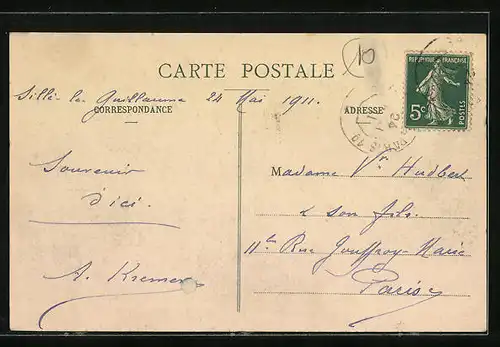 10
RÉPUBLIQUE FRANÇAISE
5c
POSTES
CARTE POSTALE
Sillé-le-Guillaume 24 Mai 1911.
CORRESPONDANCE
ADRESSE
Souvenir
d'ici.
A. Kremer
Madame Vve Hudbert
& son fils.
Rue Geoffroy-Marie
Paris